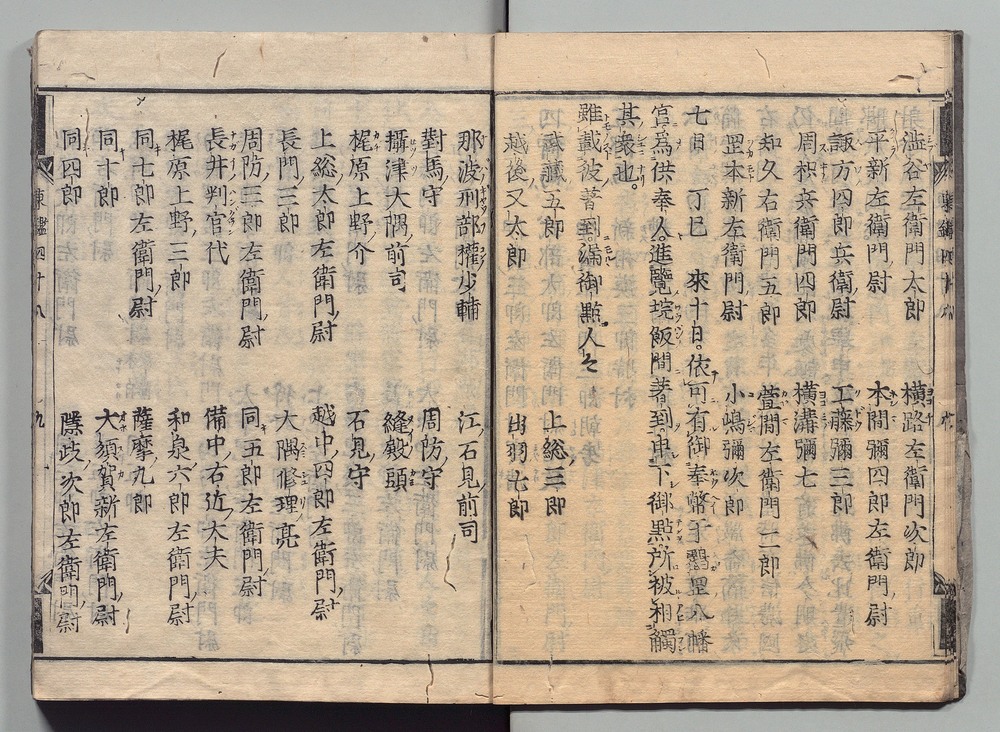 澁谷左衛門太郎 横路左衛門次郎
平新左衛門尉 本間彌四郎左衛門尉
諏方四郎兵衛尉 工藤彌三郎
周枳兵衛門四郎 横溝彌七
知久右衛門五郎 萱間左衛門二郎
埜本新左衛門尉 小嶋彌次郎
七日 丁巳 來十日。依可有御奉幣于靍罡八幡
宮爲供奉人進覽垸飯間著到申下御點所被相觸
其衆也。
雖載彼著到漏御點人々
斎藤五郎 上総三郎
越後又太郎 出羽七郎
那波刑部權少輔 江石見前司
對馬守 周防守
攝津大隅前司 縫殿頭
梶原上野介 石見守
上総太郎左衛門尉 越中四郎左衛門尉
長門三郎 大隅修理亮
周防三郎左衛門尉 同五郎左衛門尉
長井判官代 備中右近大夫
梶原上野三郎 和泉六郎左衛門尉
同七郎左衛門尉 薩摩九郎
同十郎 大須賀新左衛門尉
同四郎 隱岐次郎左衛門尉
東鑑四十八 九